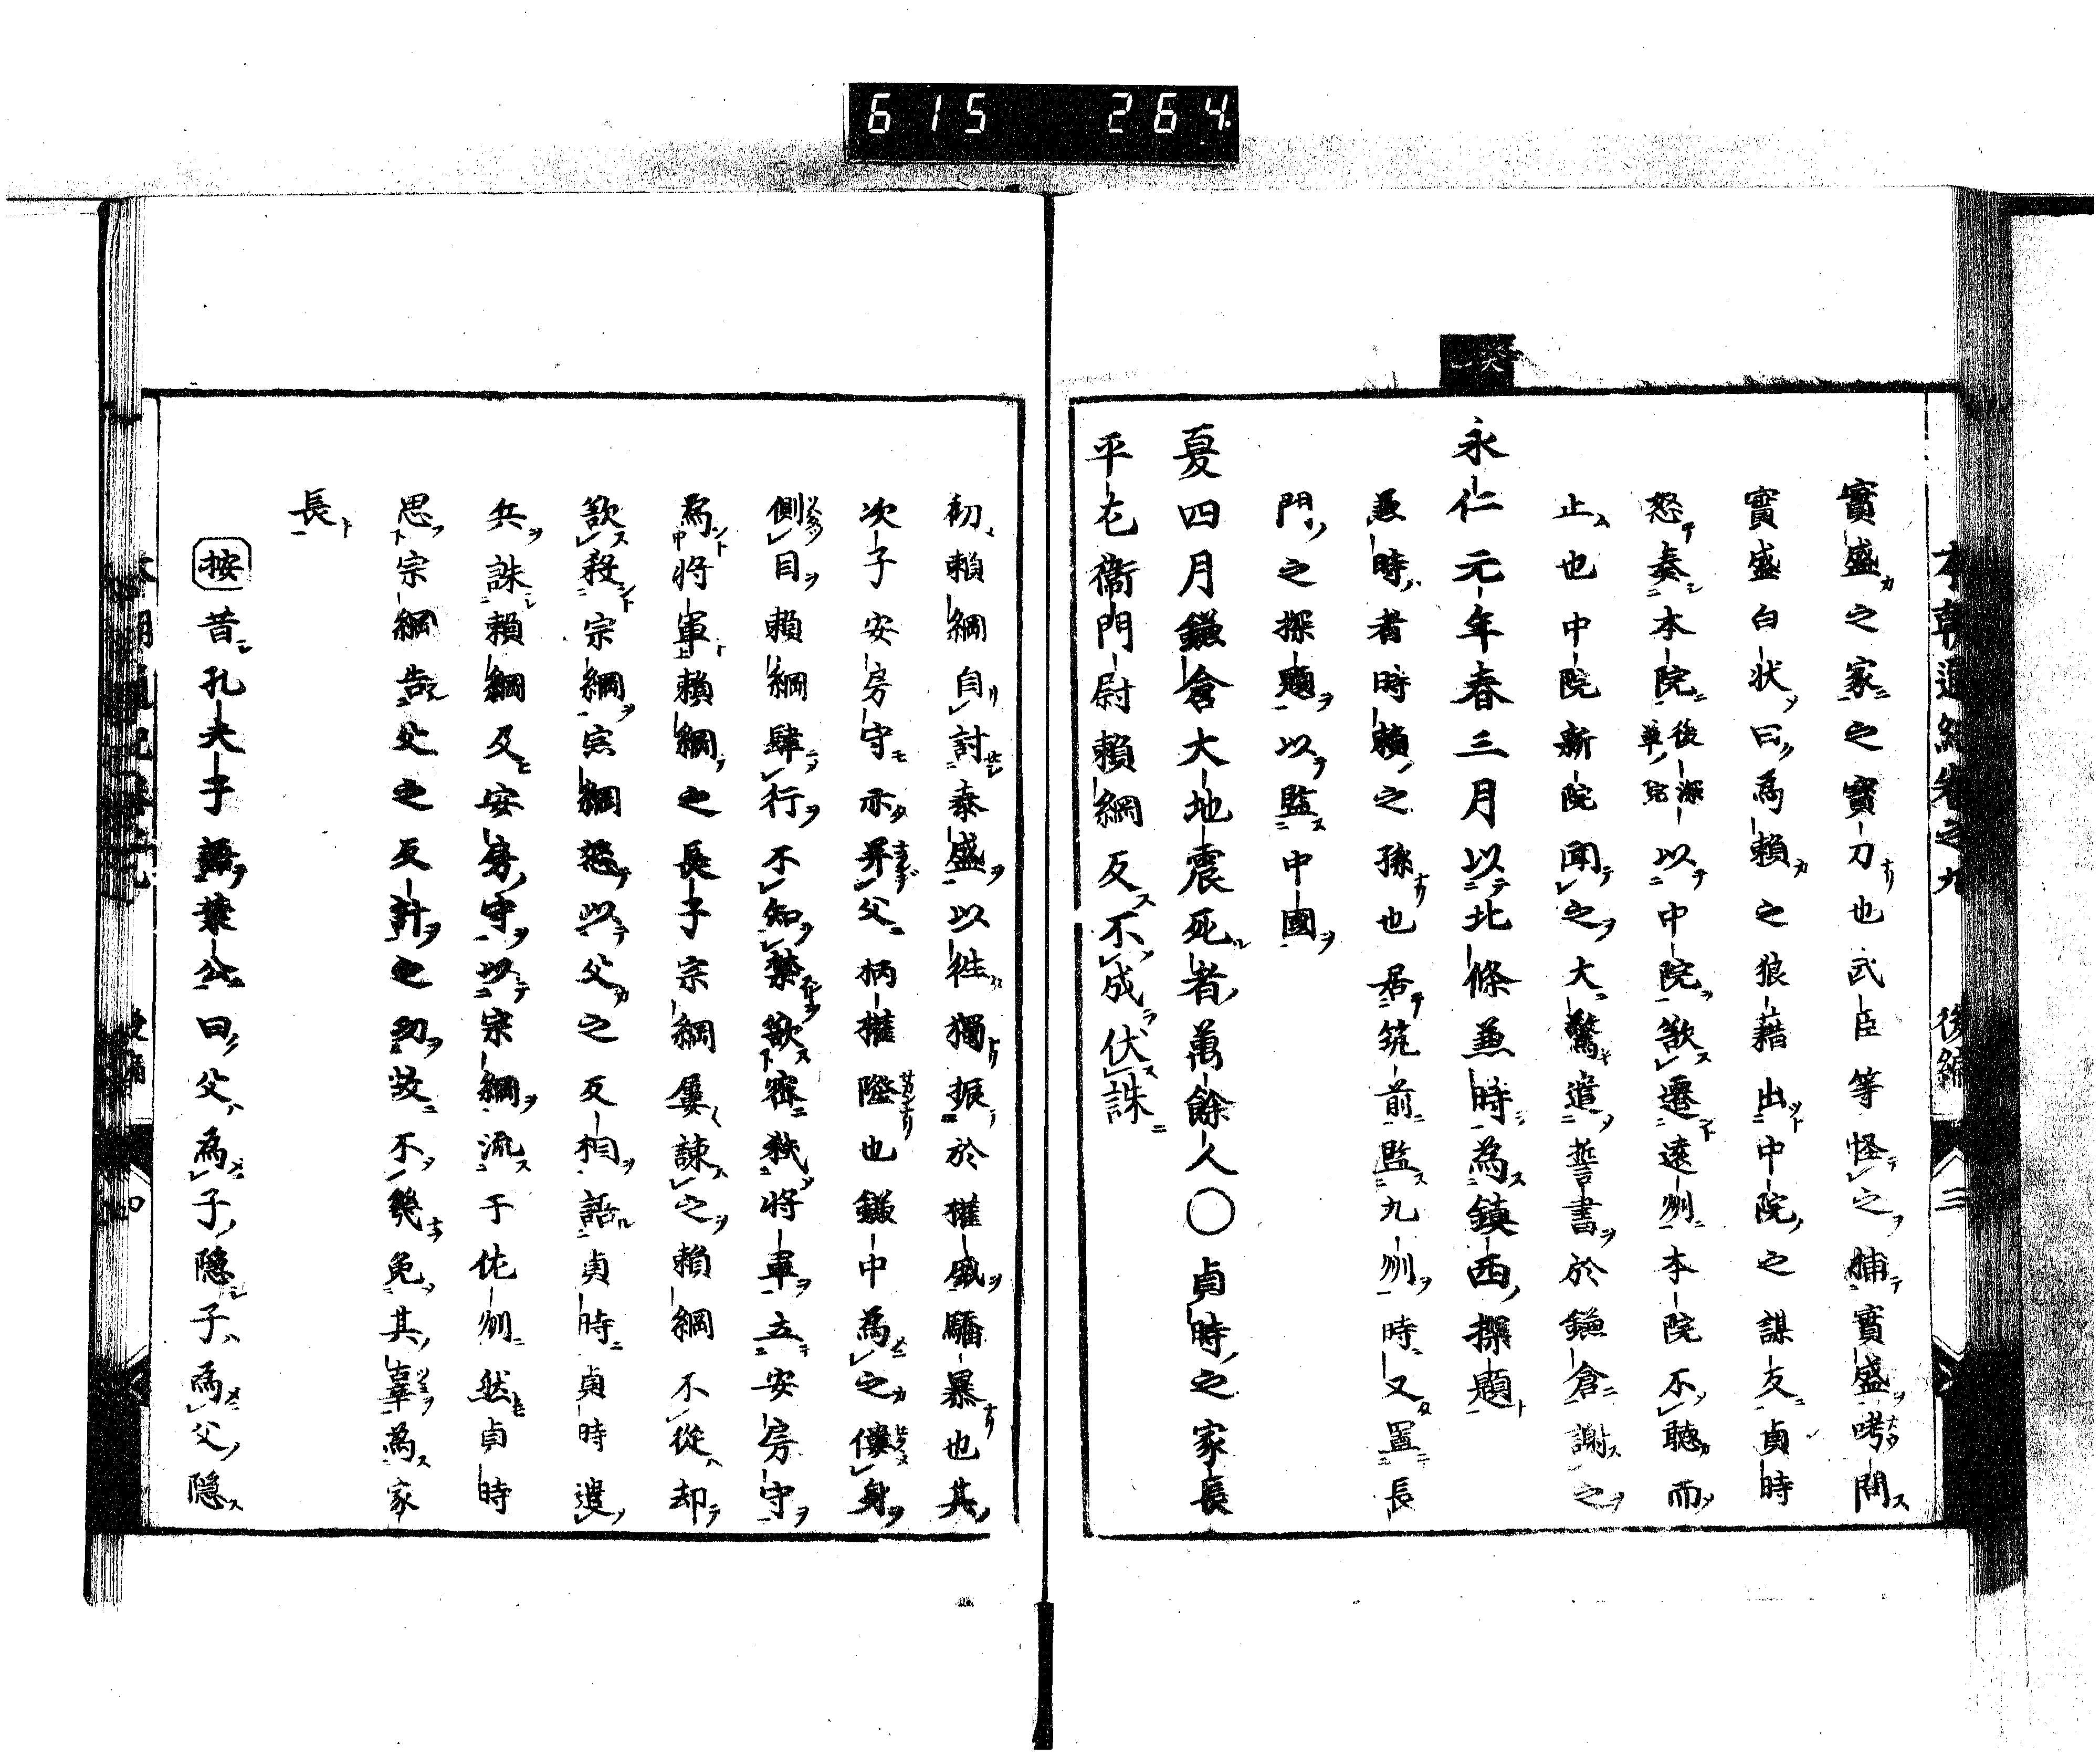 615 264.
本朝通紀卷之九 後編 三
實盛之家之寶刀也武臣等怪之捕實盛嗙問
實盛白狀曰爲賴之狼藉出中院之謀反貞時
怒奏本院後深草院以中院欲遷遠州本院不聽而
止也中院新院聞之大驚遣誓書於鎌倉謝之
癸巳
永仁元年春三月以北條兼時爲鎮西探題
兼時者時賴之孫也居筑前監九州時又置長
門之探題以監中國
夏四月鎌倉大地震死者萬餘人○貞時之家長
平左衞門尉賴綱反不成伏誅
初賴綱自討泰盛以徃獨振於權威驕暴也其
次子安房守亦昇父柄權隆也鎌中爲之僂身
側目賴綱肆行不知禁欲密弑將軍立安房守
爲將軍賴綱之長子宗綱屢諫之賴綱不從却
欲殺宗綱宗綱怒以父之反相語貞時貞時遣
兵誅賴綱及安房守以宗綱流于佐州然貞時
思宗綱告父之反計之功故不幾免其辜爲家
長
按昔孔夫子語葉公曰父爲子隱子爲父隱